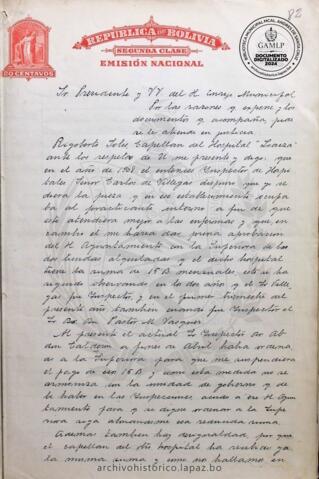 REPÚBLICA DE BOLIVIA
SEGUNDA CLASE
EMISIÓN NACIONAL
20 CENTAVOS
GAMLP
DOCUMENTO
DIGITALIZADO
2024
82
Sr. Presidente y VV del H. Consejo Municipal
Por las razones q. expone y los
documentos q. acompaña pide
se le atienda en justicia
Rigoberto Capellan del Hospital "Loaiza"
ante los respetos de U me presento y digo: que
en el año de 1908 el entonces Inspector de Hospi
tales Señor Carlos de Villegas dispuso que yo
diera la pieza q. en ese establecimiento ocupa
ba al practicante interno a fin de que
este atendiera mejor a las enfermas y que en
cambio el me daria previa aprobacion
del H. Ayuntamiento con la Superiora de las
dos tiendas alquiladas q. el dicho hospital
tiene la suma de 15 B mensuales, esto se ha
seguido observando en los dos años q. el Sr Ville
gas fue Inspector, y en el primer trimestre del
presente año tambien cuando fue Inspector el
Sr. Dr. Pastor M.
Al presente el actual Sr Inspector
don Calderon a fines de Abril habia ordena
do a la Superiora para que me suspendiera
el pago de esos 15 B y como esta medida no se
armoniza con la unidad de gobierno q. de
be haber en las Inspecciones acudo a ese H Ayun
tamiento para q. se digne ordenar a la Supe
riora siga abonandome esa suma
Ademas tambien hay desigualdad, por que
el capellan del otro hospital ha recibido ya
la misma suma y como nos hallamos en
archivohistorico.lapaz.bo